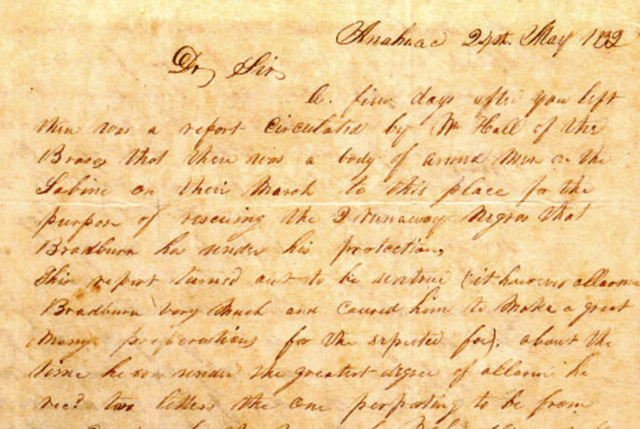 Anahuac 24st. May 1832
Dr, Sir,
A. few days after you left
their was a report Circulated by Wm Hall of the
Brasos that there was a body of armed Men on the
Sabine on their March to this place for the
purpose of rescuing the 2 runaway Negros that
Bradburn has under his protection,
This report turned out to be untrue (it however allarmd
Bradburn very Much and caused him to Make a great
Many preperations for the expected foe). about the
time he was under the greatest degree of allarm he
recd. two letters the one perporting to be from